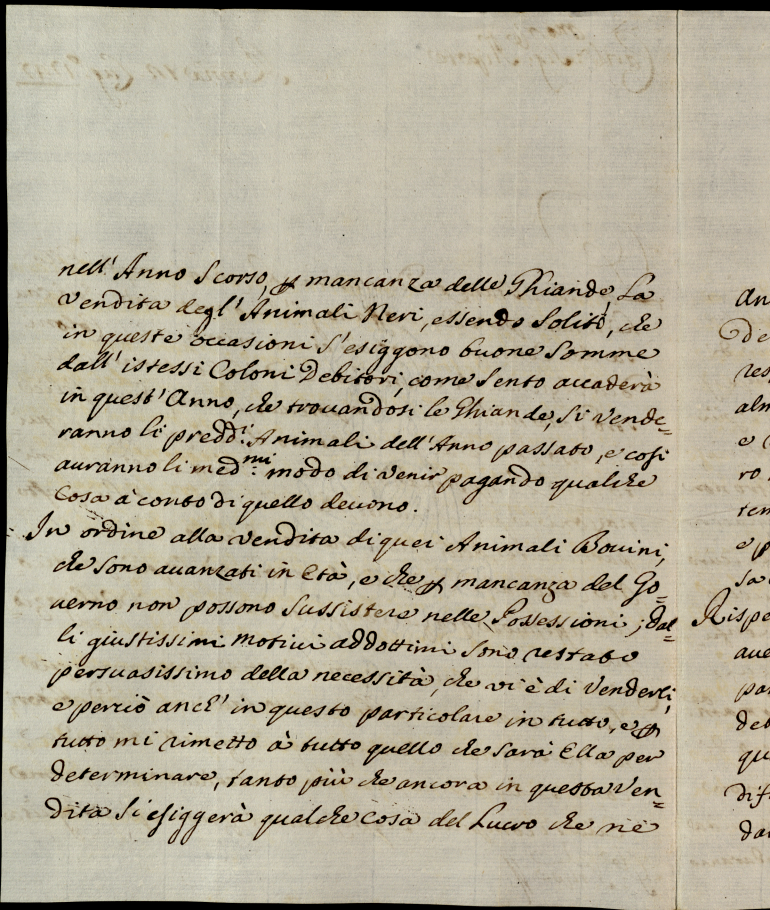 nell' Anno Scorso, p mancanza delle Ghiande, La
vendita degl' Animali Neri, essendo Solito, che
in queste occasioni s'esiggono buone Somme
dall' istessi Coloni Debitori, come Sento accaderà
in quest' Anno, che trovandosi le Ghiande, Si Vende=
ranno li predd.i Animali dell' Anno passato, e cosi
auranno li med.mi modo di venir pagando qualche
Cosa à conto di quello devono.
In ordine alla vendita di quei Animali Bovini,
che sono avanzati in Età, e che p mancanza del Go=
verno non possono Sussistere nelle Possessioni; dal=
li giustissimi motivi addottimi sono restato
persuasissimo della necessità, che vi è di Venderli,
e perciò anch' in questo particolare in tutto, e p
tutto mi rimetto à tutto quello che sarà Ella per
determinare, tanto più che ancora in questa Ven=
dita Si esiggerà qualche Cosa del Lucro che n'è
an
De
res
alm
e
ro
ten
e p
Sa
Rispe
ave
par
deb
qu
dif
da